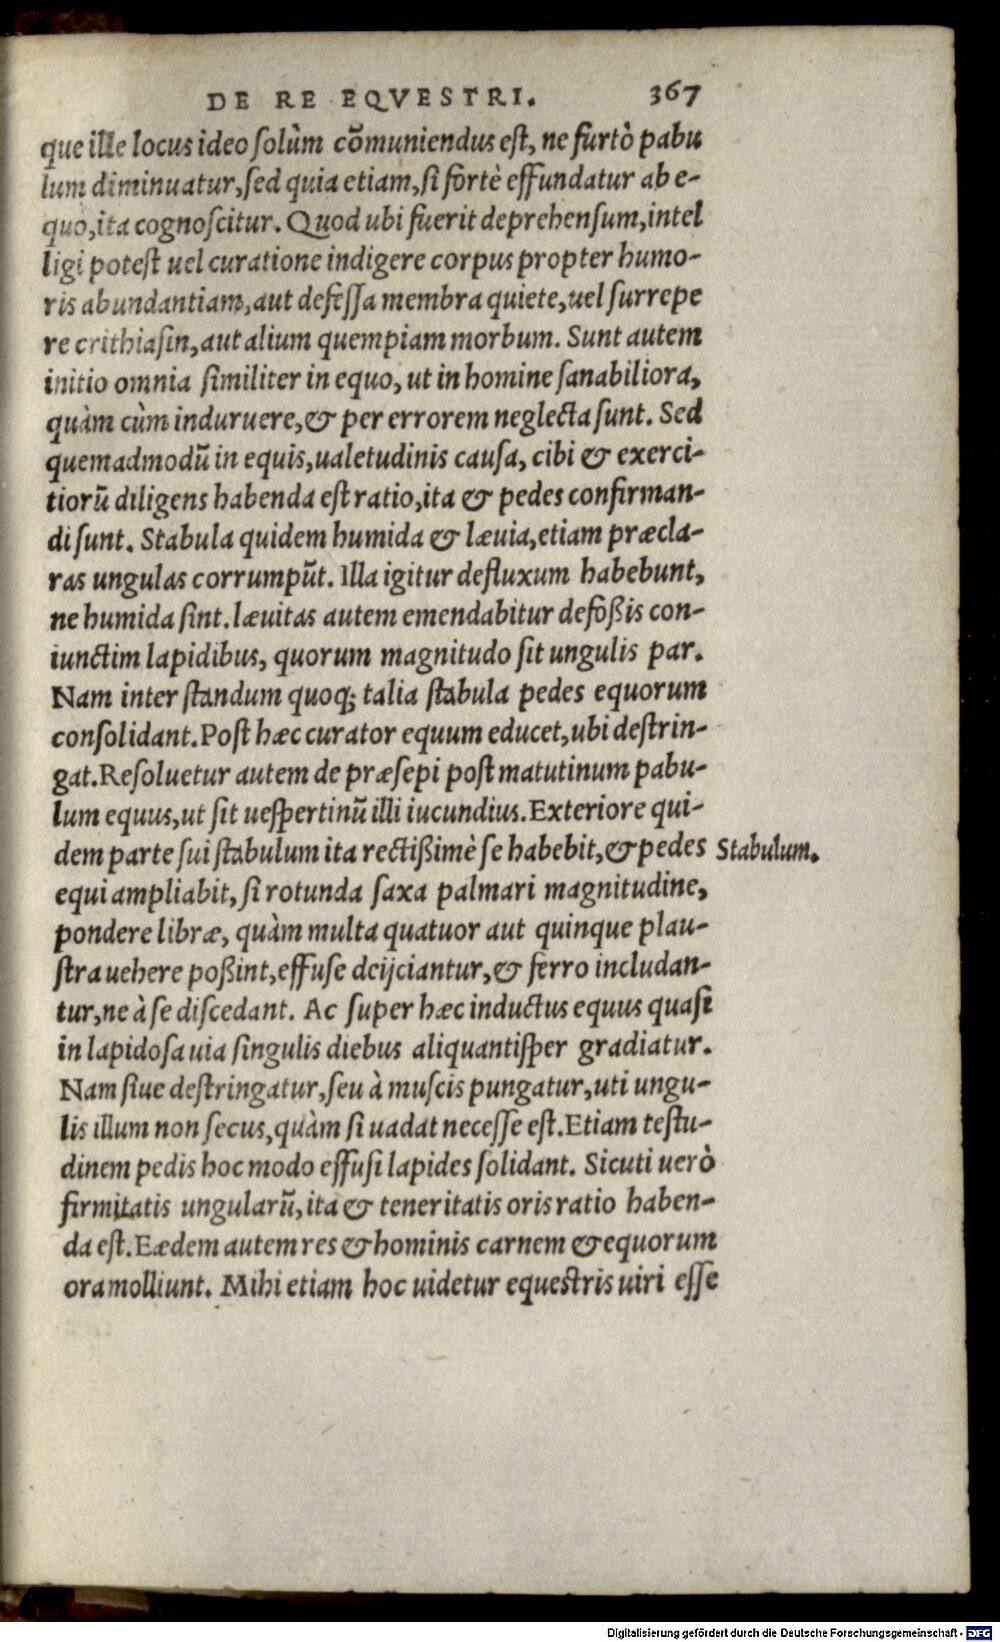 DE RE EQVESTRI. 367
que ille locus ideo ſolùm cõmuniendus eſt, ne furtò pabu
lum diminuatur, ſed quia etiam, ſi fortè effundatur ab e-
quo, ita cognoſcitur. Quod ubi fuerit deprehenſum, intel
ligi poteſt uel curatione indigere corpus propter humo-
ris abundantiam, aut defeſſa membra quiete, uel ſurrepe
re crithiaſin, aut alium quempiam morbum. Sunt autem
initio omnia ſimiliter in equo, ut in homine ſanabiliora,
quàm cùm induruere, & per errorem neglecta ſunt. Sed
quemadmodũ in equis, ualetudinis cauſa, cibi & exerci-
tiorũ diligens habenda eſt ratio, ita & pedes confirman-
di ſunt. Stabula quidem humida & læuia, etiam præcla-
ras ungulas corrumpũt. Illa igitur defluxum habebunt,
ne humida ſint. læuitas autem emendabitur defoßis con-
iunctim lapidibus, quorum magnitudo ſit ungulis par.
Nam inter ſtandum quoq; talia ſtabula pedes equorum
conſolidant. Poſt hæc curator equum educet, ubi deſtrin-
gat. Reſoluetur autem de præſepi poſt matutinum pabu-
lum equus, ut ſit ueſpertinũ illi iucundius. Exteriore qui-
dem parte ſui ſtabulum ita rectißimè ſe habebit, & pedes Stabulum.
equi ampliabit, ſi rotunda ſaxa palmari magnitudine,
pondere libræ, quàm multa quatuor aut quinque plau-
ſtra uehere poßint, effuſe deijciantur, & ferro includan-
tur, ne à ſe diſcedant. Ac ſuper hæc inductus equus quaſi
in lapidoſa uia ſingulis diebus aliquantiſper gradiatur.
Nam ſiue deſtringatur, ſeu à muſcis pungatur, uti ungu-
lis illum non ſecus, quàm ſi uadat neceſſe eſt. Etiam teſtu-
dinem pedis hoc modo effuſi lapides ſolidant. Sicuti uerò
firmitatis ungularũ, ita & teneritatis oris ratio haben-
da eſt. Eædem autem res & hominis carnem & equorum
ora molliunt. Mihi etiam hoc uidetur equeſtris uiri eſſe
Digitalisierung gefördert durch die Deutsche Forschungsgemeinschaft - DFG